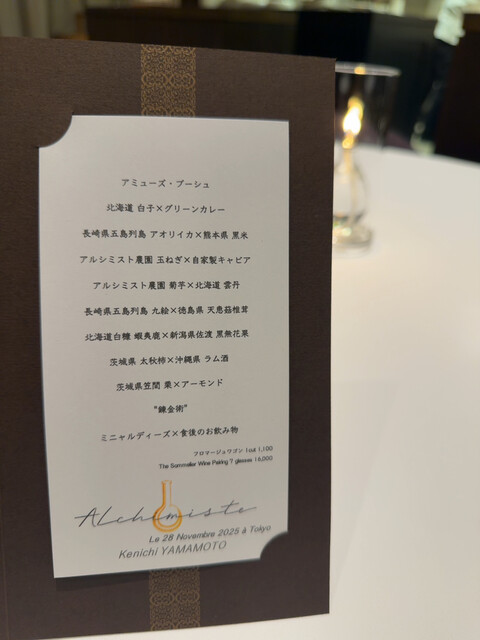 アミューズ・ブーシュ
北海道 白子×グリーンカレー
長崎県五島列島 アオリイカ×熊本県 黒米
アルシミスト農園 玉ねぎ×自家製キャビア
アルシミスト農園 菊芋×北海道 雲丹
長崎県五島列島 九絵×徳島県 天恵菇椎茸
北海道白糠 蝦夷鹿×新潟県佐渡 黒無花果
茨城県 太秋柿×沖縄県 ラム酒
茨城県笠間 栗×アーモンド
"錬金術"
ミニャルディーズ×食後のお飲み物
フロマージュワゴン 1cut 1,100
The Sommelier Wine Pairing 7 glasses 16,000
Alchimiste
Le 28 Novembre 2025 à Tokyo
Kenichi YAMAMOTO